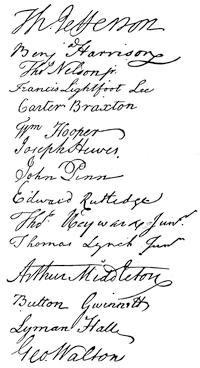 Th. Jefferson
Benj Harrison
Thos Nelson jr.
Francis Lightfoot Lee
Carter Braxton
Wm Hooper
Joseph Hewes,
John Penn
Edward Rutledge
Thos Heyward Junr.
Thomas Lynch Junr
Arthur Middleton
Button Gwinnett
Lyman Hall
Geo. Walton